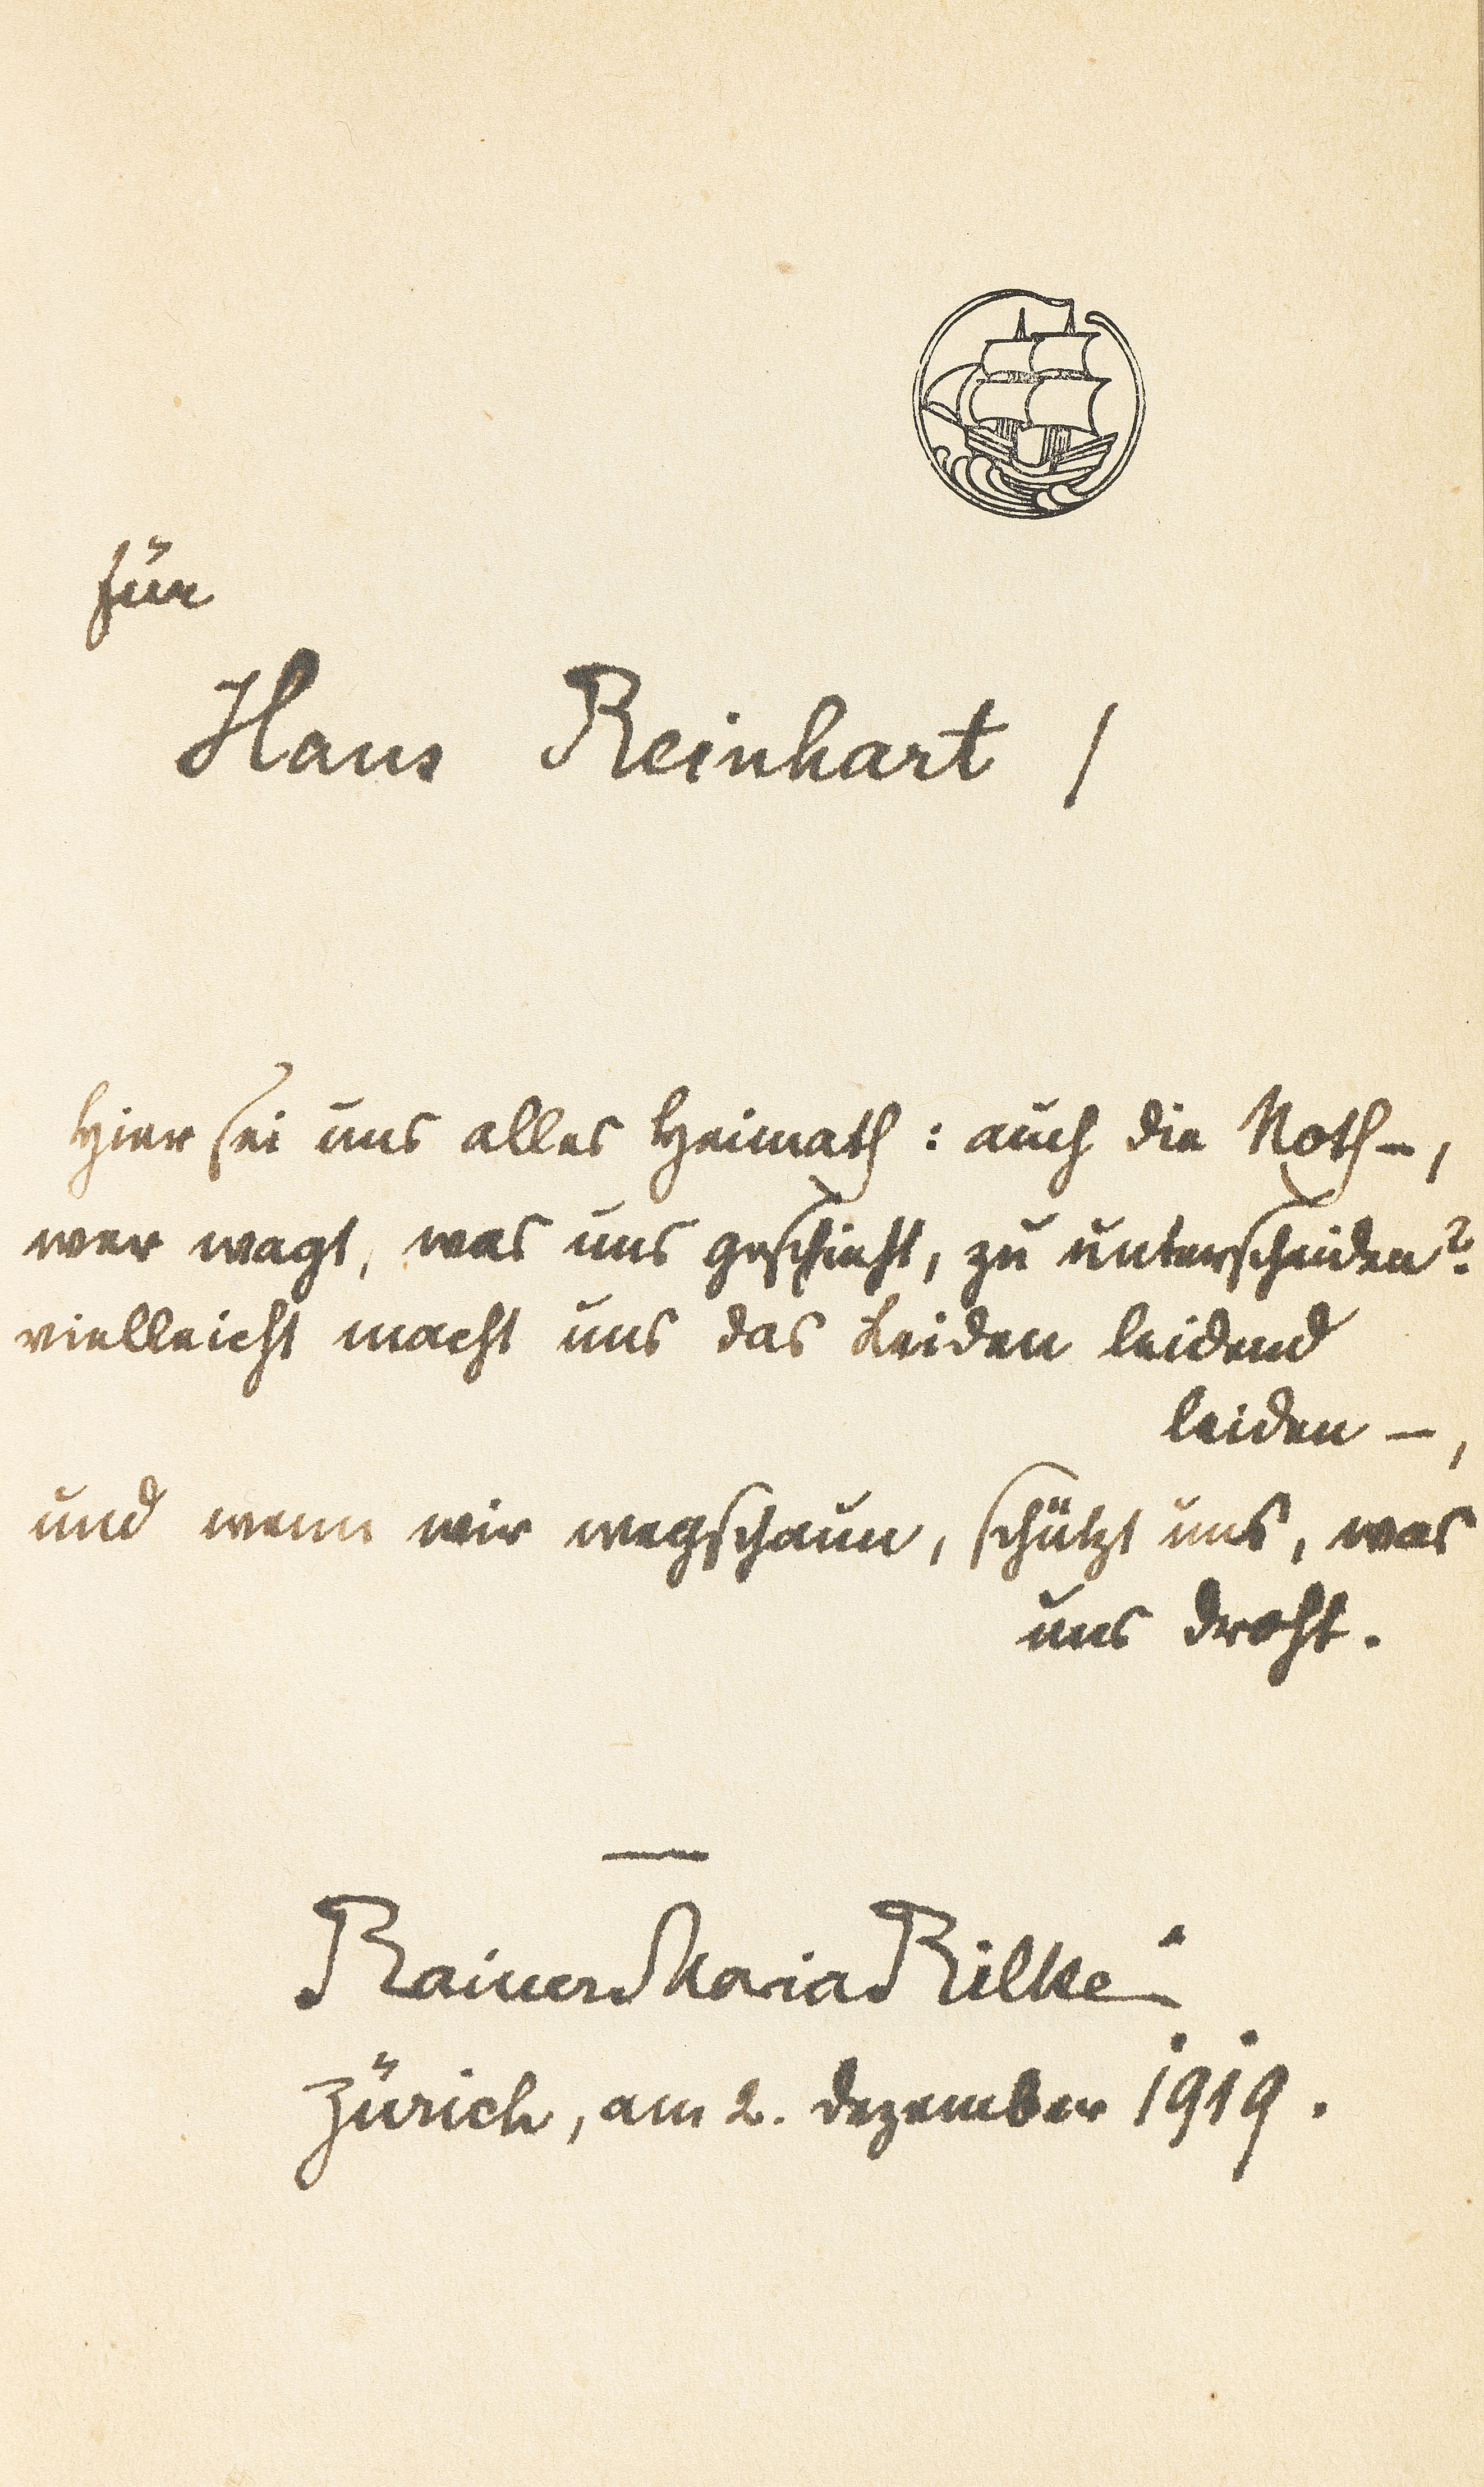 für
Hans Reinhart /
Hier sei uns alles Heimath : auch die Noth –,
wer wagt, was uns geschieht, zu unterscheiden?
vielleicht macht uns das Leiden leidend
leiden –,
und wenn wir wegschaun, schützt uns, was
uns droht.
Rainer Maria Rilke
Zürich, am 2. Dezember 1919.